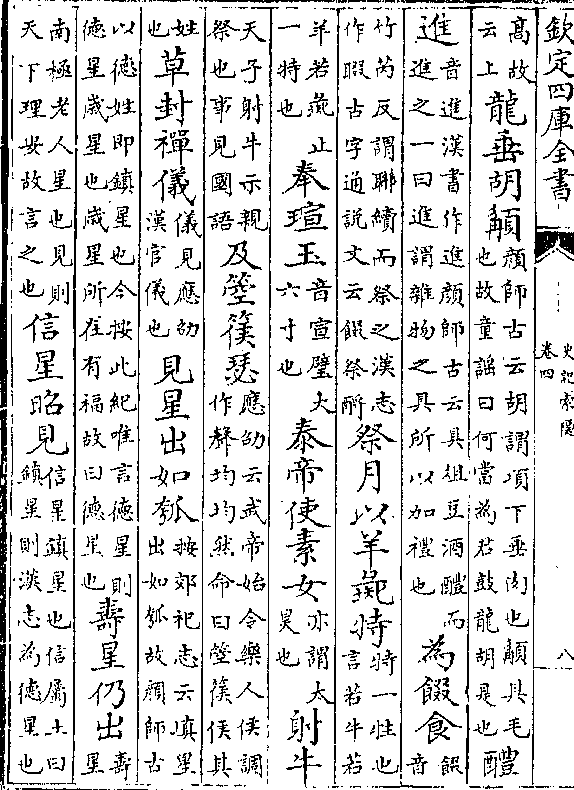 欽定四庫全書
史記索隱
卷四
八
高故云上龍垂胡䫇顔師古云胡謂項下垂肉也䫇其毛也故童謡曰何當為君鼓龍胡是也醴
進音進漢書作進顔師古云具俎豆酒醴而進之一曰進謂雜物之具所以加禮也為餟食餟音
竹芮反謂聯續而祭之漢志作腏古字通説文云餟祭酹祭月以羊彘特特一牲也言若牛若
羊若彘止一特也奉瑄玉音宣璧大六寸也泰帝使素女亦謂太昊也射牛
天子射牛示親祭也事見國語及箜篌瑟應劭云武帝始令樂人侯調作聲均均然命曰箜篌侯其
姓也草封禪儀儀見應劭漢官儀也見星出如瓠按郊祀志云塡星出如瓠故顔師古
以德姓即鎮星也今按此紀唯言德星則德星歲星也歲星所在有福故曰德星也壽星仍出壽星
南極老人星也見則天下理安故言之也信星昭見信星鎮星也信屬土曰鎮星則漢志為德星也